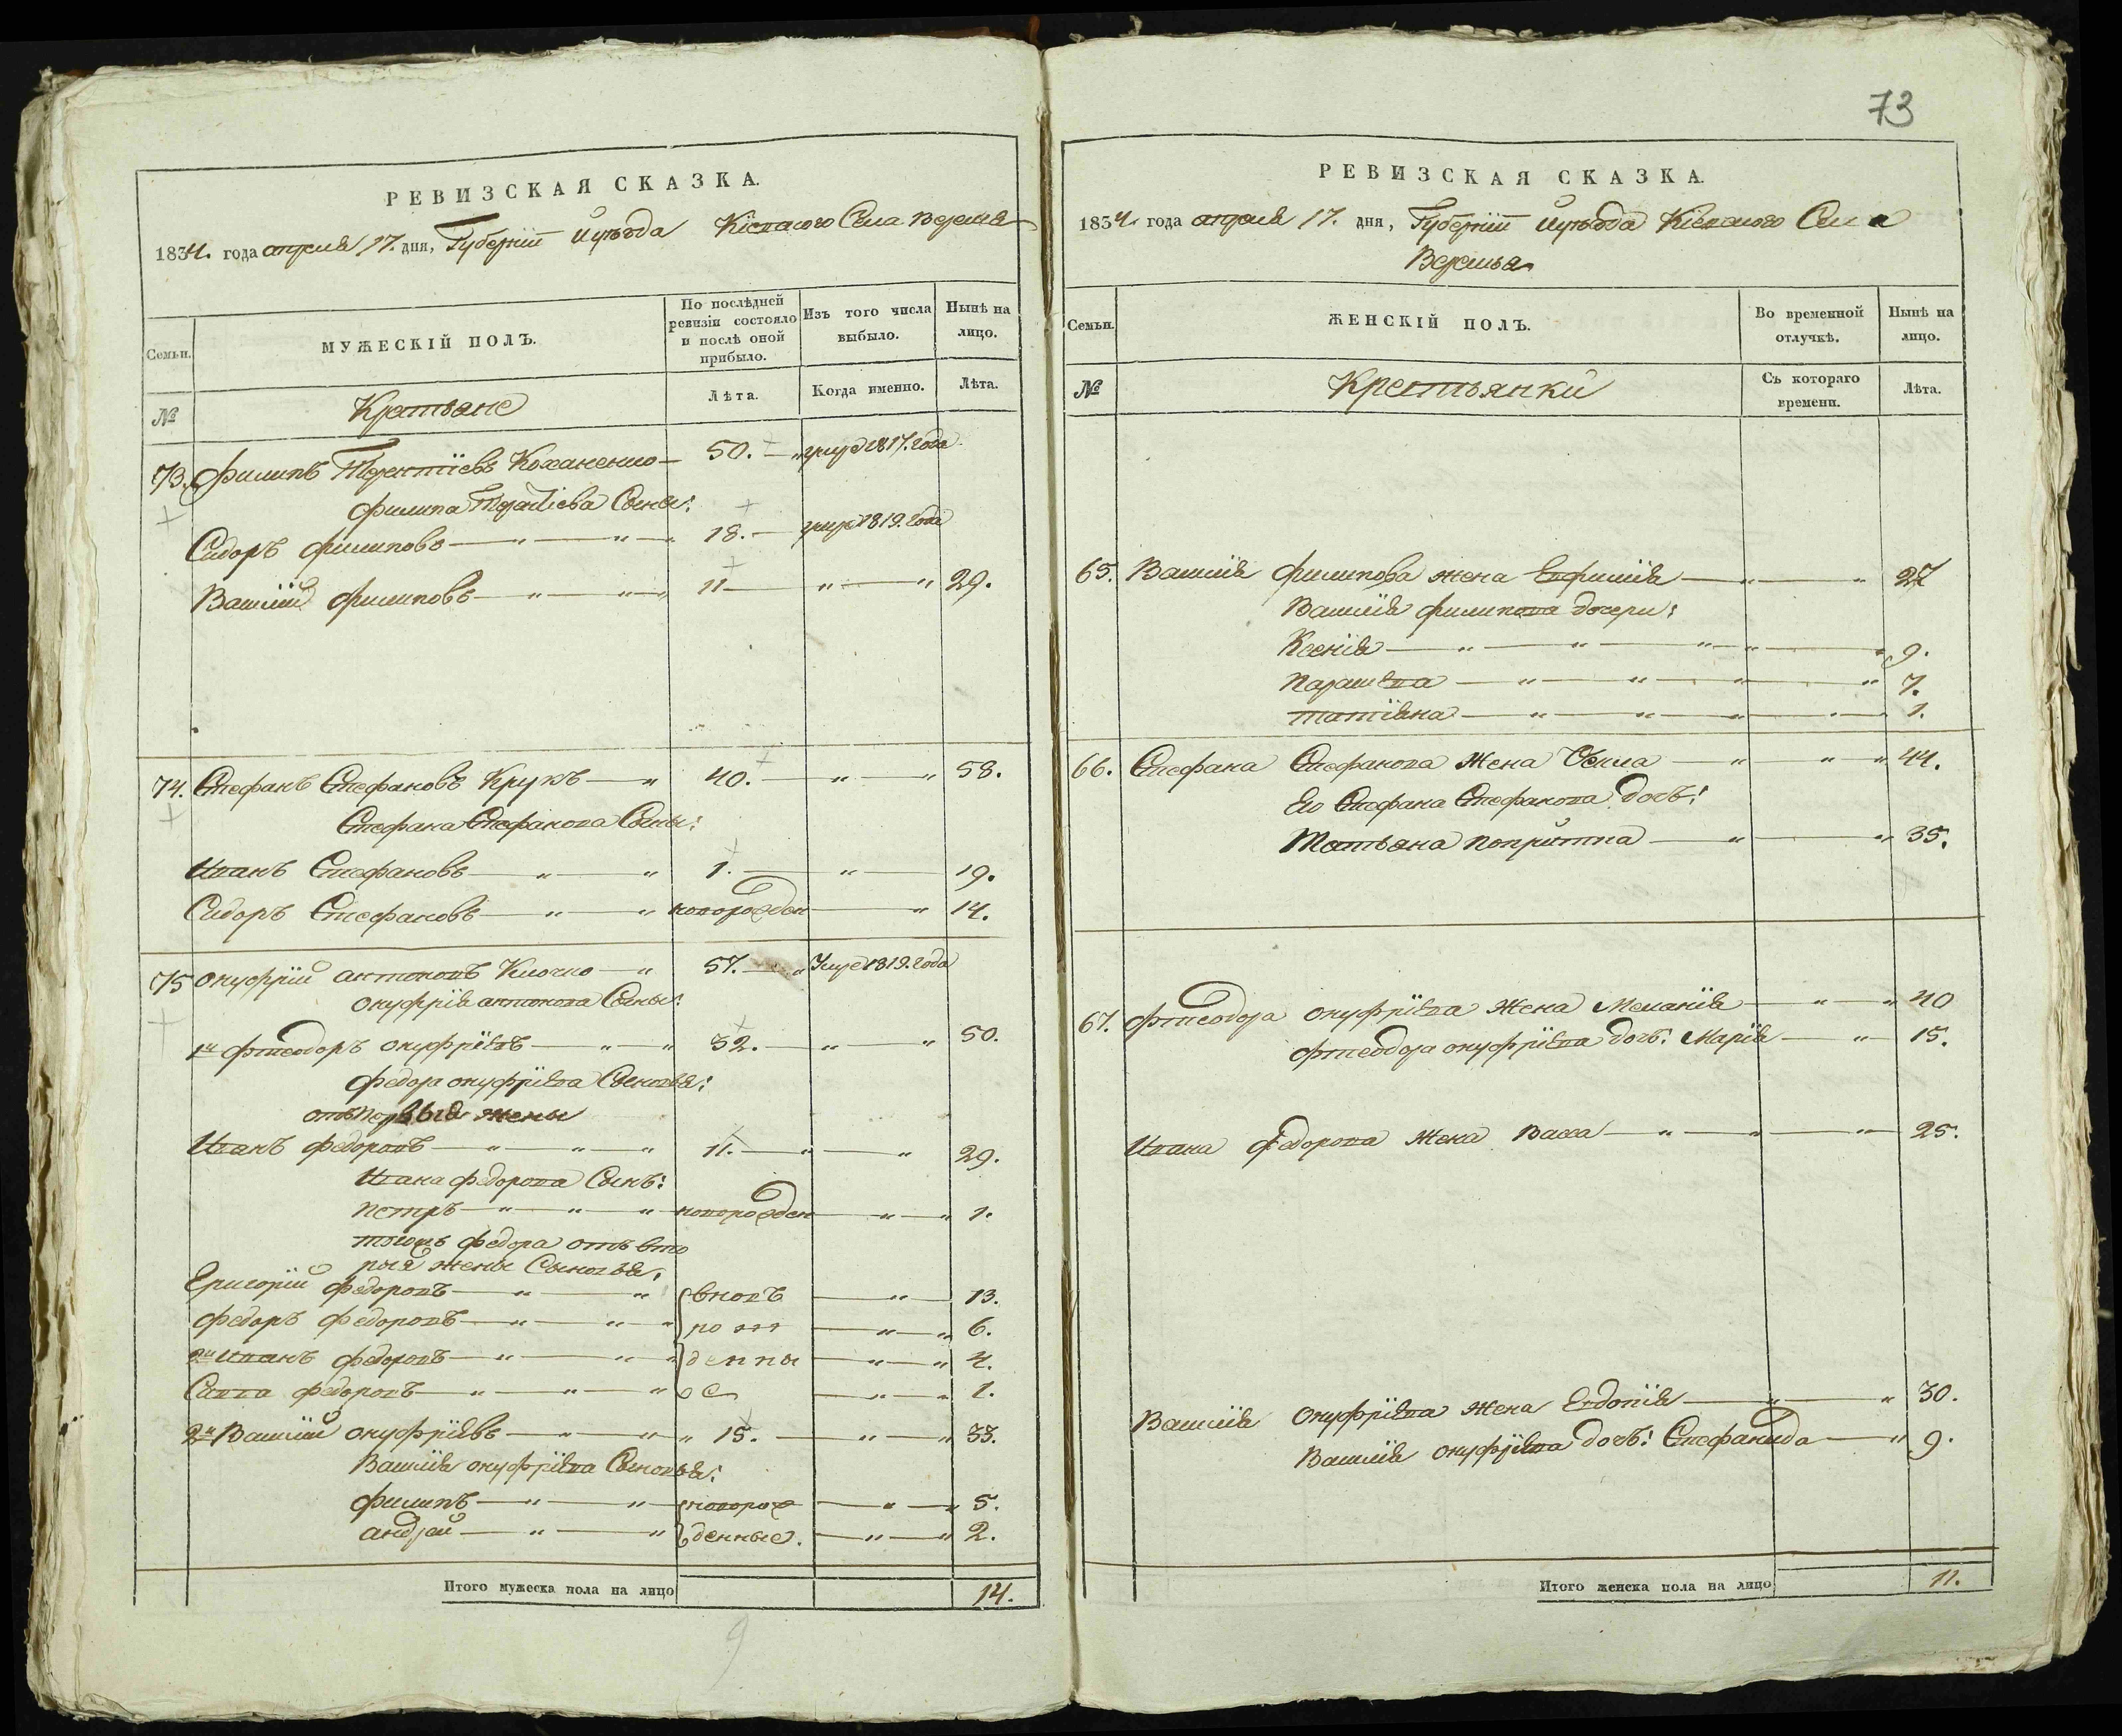 73
РЕВИЗСКАЯ СКАЗКА.
1834. года апреля 17. дня, Губернїи и уѣзда Кіевского Села Веремья
Семьи.
МУЖЕСКІЙ ПОЛЪ.
По послѣдней ревизіи состояло и послѣ оной прибыло.
Изъ того числа выбыло.
Нынѣ на лицо.
№
Крестьяне
Лѣта.
Когда именно.
Лѣта.
73. Филипъ Терентїевъ Коханенко — 50. — умре 1817. года
Филипа Терентїева Сыны:
Сидоръ Филиповъ — " — " — 18. — умре 1819. года
Василїй Филиповъ — " — " 11 — " — " 29.
74. Стефанъ Стефановъ Крукъ — " 40. — " — " 58.
Стефана Стефанова Сыны:
Иванъ Стефановъ — " — " 1. — " — 19.
Сидоръ Стефановъ — " — " новорожден — " 14.
75 Онуфрїй Антоновъ Клочко — " 57. — " Умре 1819. года
Онуфрїя Антонова Сыны:
1й Фтеодоръ Онуфрїевъ — " — " 32. — " — " 50.
Федора Онуфрїева Сыновья:
отъ первыя жены
Иванъ Федоровъ — " — " — " 11. — " — " 29.
Ивана Федорова Сынъ:
Петръ — " — " — " новорожден — " — " 1.
тогожъ Федора отъ вто
рыя жены Сыновья,
Григорїй Федоровъ — " — " вновъ — " — 13.
Федоръ Федоровъ — " — " — " ро — " — " 6.
2й Иванъ Федоровъ — " — " — " денны — " — " 4.
Савва Федоровъ — " — " — " е — " — " 1.
2й Василїй Онуфрїевъ — " — " " 15. — " — " 33.
Василїя Онуфрїева Сыновья:
Филипъ — " — " — новорож — " — " 5.
Андрей — " — " денные. — " — " 2.
Итого мужеска пола на лицо 14.
9
РЕВИЗСКАЯ СКАЗКА.
1834. года апреля 17. дня, Губернїи и уѣзда Кіевского Села
Веремья
Семьи.
ЖЕНСКІЙ ПОЛЪ.
Во временной отлучкѣ.
Нынѣ на лицо.
№
Крестьянки
Съ котораго времени.
Лѣта.
65. Василїя Филипова жена Евфимїя — " — " 27
Василїя Филипова дочери:
Ксенїя — " — " — " " — " 9.
Парашева — " — " — " — " 7.
Татїяна — " — " — " — " — 1.
66. Стефана Стефанова Жена Фекла — " — " — " 44.
Его Стефана Стефанова дочь:
Татьяна — " — " 35.
67. Фтеодора Онуфрїева Жена Меланїя — " — " 40
Фтеодора Онуфрїева дочь: Марїя — " — 15.
Ивана Федорова Жена Васса — " — " — " — 25.
Василїя Онуфрїева жена Евдокїя — " — " 30.
Василїя Онуфрїева дочь: Стефанида — " 9.
Итого женска пола на лицо 11.